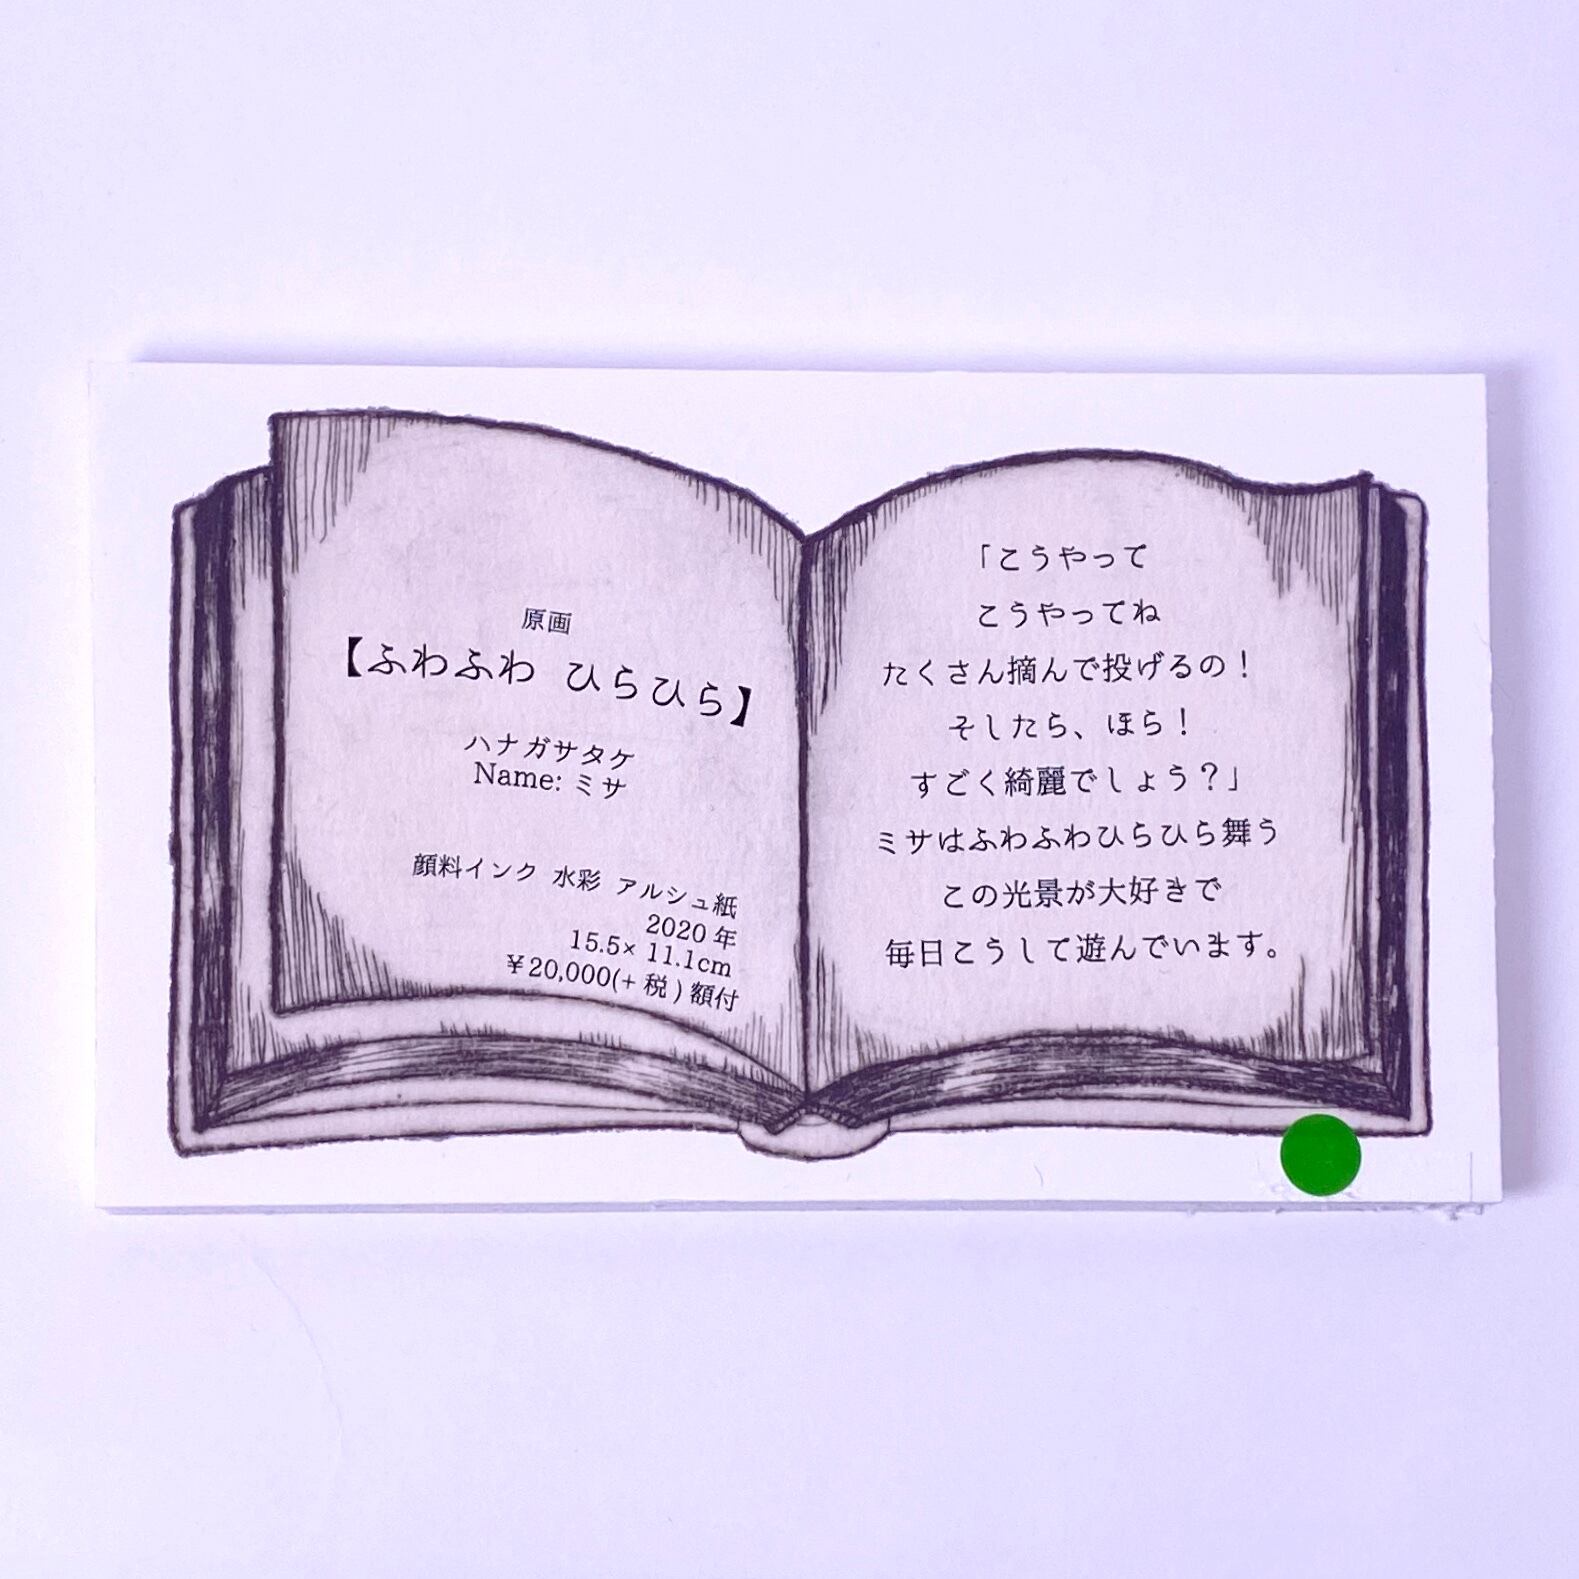 原画
【ふわふわ ひらひら】
ハナガサタケ
Name: ミサ
顔料インク 水彩 アルシュ紙
2020 年
15.5× 11.1cm
￥20,000(+ 税 ) 額付
「こうやって
こうやってね
たくさん摘んで投げるの！
そしたら、ほら！
すごく綺麗でしょう？」
ミサはふわふわひらひら舞う
この光景が大好きで
毎日こうして遊んでいます。